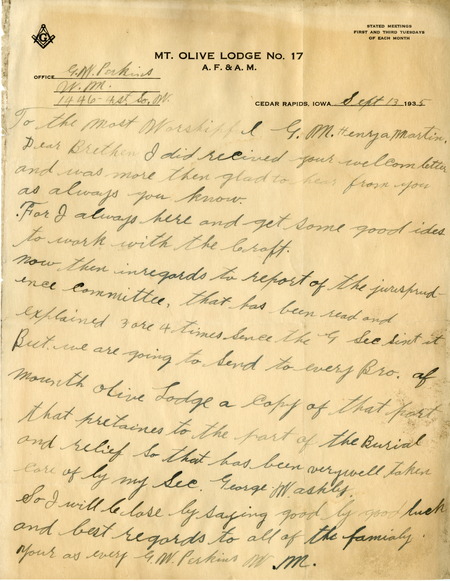 STATED MEETINGS
FIRST AND THIRD TUESDAYS
OF EACH MONTH
MT. OLIVE LODGE NO. 17
A. F. & A. M.
OFFICE G.W. Perkins
W. M.
CEDAR RAPIDS, IOWA Sept 13 1935
To the Most Worshipf l G. M. Henry a Martin.
Dear Brethen I did recived your welcom letter
and was more then glad to hear from you
as always you know.
For I always here and get some good ides
to work with the Craft.
now then in regards to report of the jurisprud-
ence committee, that has been read and
explained 3 ore 4 times sence the G Sec sint it
But we are going to send to every Bro. of
Mounth Olive Lodge a copy of that part
that pretaines to the part of the Burial
and relief so that has been very well taken
care of by my Sec. George Washly.
So I will be close by saying good by good luck
and best regards to all of the famialy.
your as every G.W. Perkins W. M.